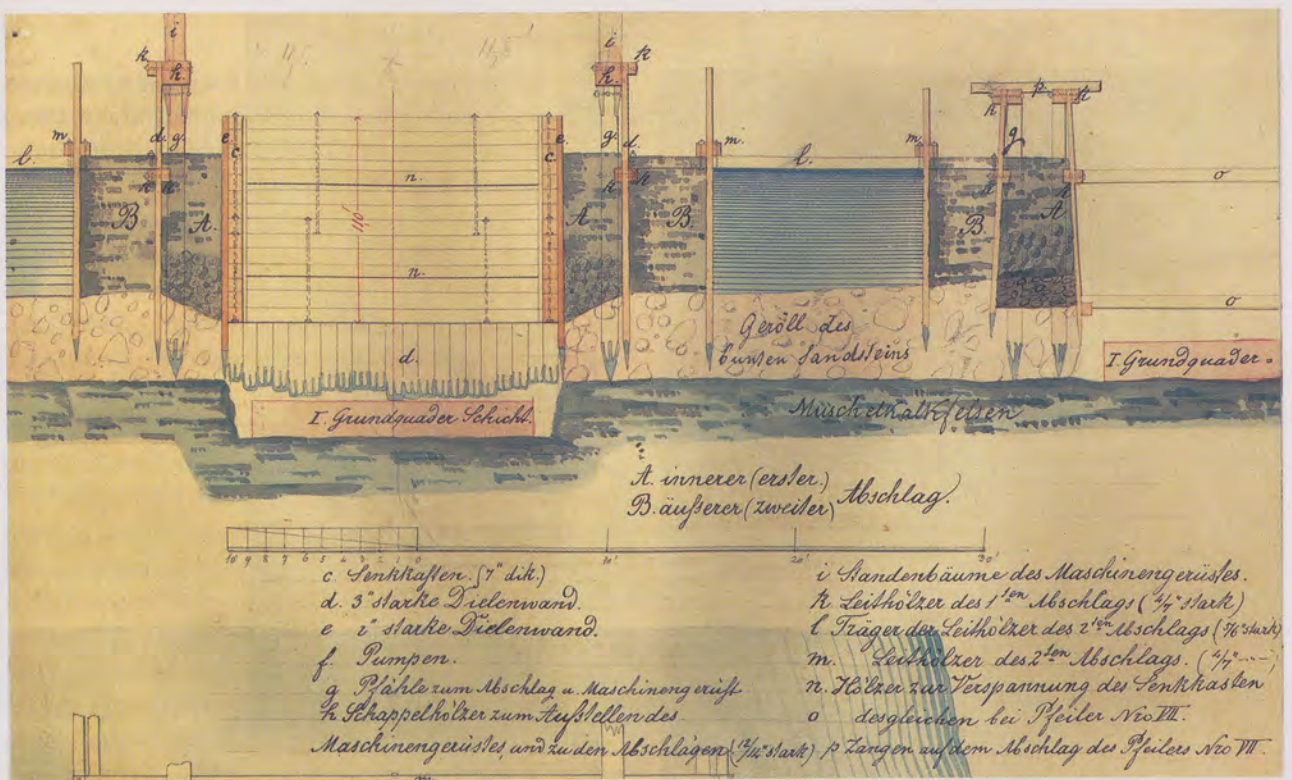 i
i
k
h.
h.
k
p
k
k
m
d.
g.
e.
c.
e.
c.
g.
d.
m.
l.
m
g
l.
k
k
n.
k
k
k
k
o
B
A.
11½'
A
B.
B.
A
n.
o
Geröll des
bunten Sandsteins
d.
I. Grundquader.
I. Grundquader Schicht.
Muschelkalkfelsen
A. innerer (erster)
B. äußerer (zweiter) Abschlag.
10 9 8 7 6 5 4 3 2 1 0 10' 20' 30'
c. Senkkasten. (7" dik.)
d. 3" starke Dielenwand.
e 2" starke Dielenwand.
f. Pumpen.
g Pfähle zum Abschlag u. Maschinengerüst
h Schappelhölzer zum Aufstellen des
Maschinengerüstes, und zu den Abschlägen (12/12" stark)
i Standenbäume des Maschinengerüstes.
k Leithölzer des 1ten Abschlags (4/7" stark)
l Träger der Leithölzer des 2ten Abschlags (7/6" stark)
m. Leithölzer des 2ten Abschlags. (4/7" ----)
n. Hölzer zur Verspannung des Senkkasten
o desgleichen bei Pfeiler Nro VII.
p Zangen auf dem Abschlag des Pfeilers Nro VII.
m